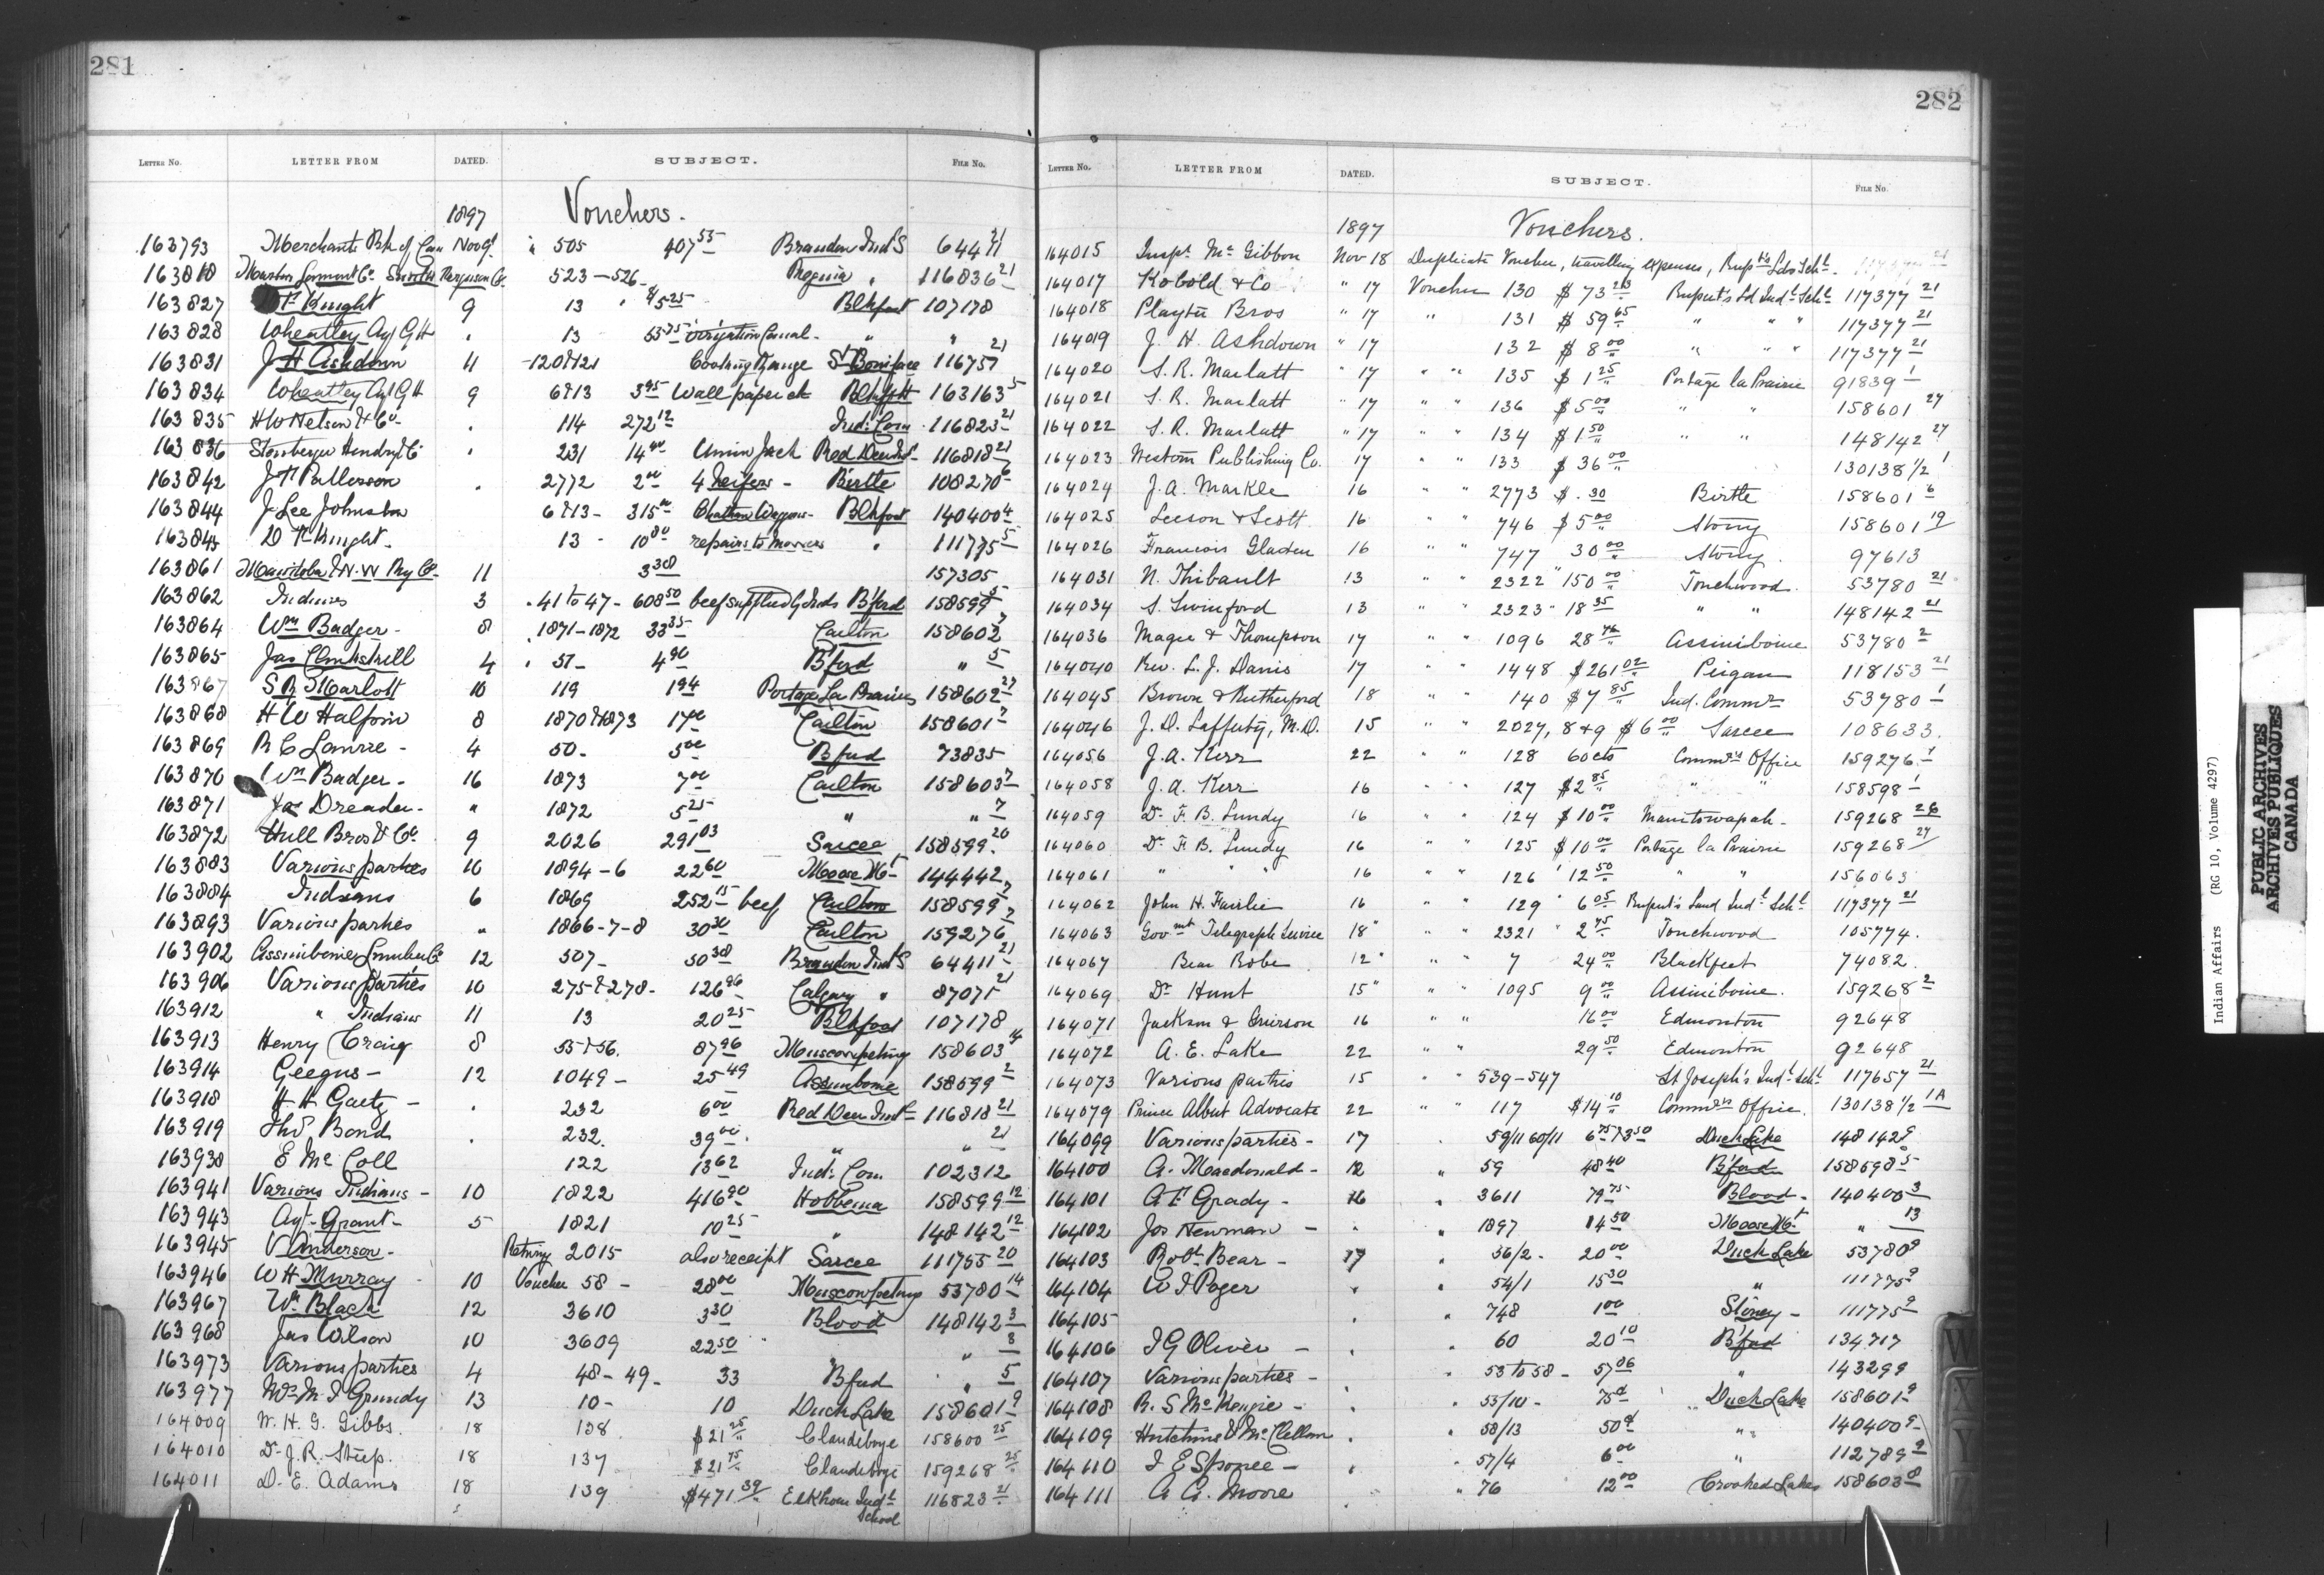 281
LETTER No. LETTER FROM DATED. SUBJECT. FILE No.
1897 Vouchers.
163793 Merchants Bk of Can Nov 9 " 505 407 55 Brandon Ind S 64411 21
163818 523 - 526 Regina " 116836 21
163827 Knight 9 13 " 5 25 Blkfoot 107178
163828 Wheatley Ag GH " 13 irrigation Canal - " "
163831 J H Ashdown 4 120 & 121 Cooking Range St Boniface 116757 21
163834 Wheatley Ag GH 9 6 & 13 3 95 Wall paper &c Blkft 163163 5
163835 H W Nelson & Co " 114 272 12 Ind. Com 116823 21
163836 231 14 40 Union Jack Red Deer Ind 116818 21
163842 J F Patterson " 2772 2 00 4 Heifers - Birtle 108270 6
163844 J Lee Johnston 6 & 13 - 315 00 Chatham Waggons - Blkfoot 140400 4
163845 D F Knight - 13 - 10 80 repairs to mowers " 111775 5
163861 Manitoba & N.W Ry Co - 11 3 30 157305
163862 Indians 3 " 41 to 47 - 608 50 beef supplied by Inds B'ford 158599 5
163864 Wm Badger - 8 " 1871-1872 33 35 Carlton 158602 7
163865 4 " 51 - 4 90 B'ford " 5
163867 S R Marlatt 10 119 1 94 Portage La Prairie 158602 27
163868 H W Halpin 8 1870 & 1873 17 00 Carlton 158601 7
163869 R C Laurie - 4 50 - 5 00 B'ford 73835
163870 Wm Badger - 16 1873 7 00 Carlton 158603 7
163871 Jas Dreaden - " 1872 5 25 " " 7
163872 Hull Bros & Co 9 2026 291 03 Sarcee 158599 20
163883 Various parties 10 1894-6 22 60 Moose Mt 144442
163884 Indians 6 1869 252 15 beef Carlton 158599 7
163893 Various parties " 1866-7-8 30 30 Carlton 159276 7
163902 Assiniboine Lumber Co 12 507 - 50 38 Brandon Ind S 64411 21
163906 Various parties 10 275 & 278 - 126 96 Calgary " 87071 21
163912 " Indians 11 13 20 25 Blkfoot 107178
163913 Henry Craig 8 55 & 56. 87 96 Muscowpetung 158603 14
163914 Geegus - 12 1049 - 25 49 Assiniboine 158599 2
163918 H H Gaetz - " 232 6 00 Red Deer Ind 116818 21
163919 Thos Bond " 232. 39 00 " " 21
163938 E McColl 122 13 62 Ind. Com 102312
163941 Various Indians - 10 1822 416 90 Hobbema 158599 12
163943 Agt - Grant - 5 1821 10 25 " 148142 12
163945 V Anderson - Retng 2015 also receipt Sarcee 111755 20
163946 W H Murray - 10 Voucher 58 - 28 00 Muscowpetung 53780 14
163967 Wm Black 12 3610 3 30 Blood 148142 3
163968 Jas Wilson 10 3609 22 50 " " 3
163973 Various parties 4 48 - 49 - 33 B'ford " 5
163977 Grundy 13 10 - 10 Duck Lake 158601 9
164009 W. H. G. Gibbs. 18 138 $21 25 Clandeboye 158600 25
164010 Dr J. R. Steep. 18 137 $21 75 Clandeboye 159268 25
164011 D. E. Adams 18 139 $471 39 Elkhorn Ind'l School 116823 21
282
LETTER No. LETTER FROM DATED. SUBJECT. FILE No.
1897 Vouchers.
164015 Insp. McGibbon Nov 18 Duplicate Voucher, travelling expenses, Rup'ts Lds Sch'l
164017 Kobold & Co " 17 Voucher 130 $73 Rupert's Ld Ind'l Sch'l 117377 21
164018 Playter Bros " 17 " 131 $59 65 " " " 117377 21
164019 J. H. Ashdown " 17 132 $8 00 " " " 117377 21
164020 S. R. Marlatt " 17 " " 135 $1 25 Portage la Prairie 91839 1
164021 S. R. Marlatt " 17 " " 136 $5 00 " " 158601 27
164022 S. R. Marlatt " 17 " " 134 $1 50 " " 148142 27
164023 Western Publishing Co. 17 " " 133 $36 00 130138 1/2 1
164024 J. A. Markle 16 " " 2773 $.30 Birtle 158601 6
164025 Leeson & Scott 16 " " 746 $5 00 Stony 158601 19
164026 Francois Gladeu 16 " " 747 30 00 Stony. 97613
164031 N. Thibault 13 " " 2322 " 150 00 Touchwood. 53780 21
164034 S. Swinford 13 " " 2323 " 18 35 " " 148142 21
164036 Magee & Thompson 17 " " 1096 28 76 Assiniboine 53780 2
164040 Rev. L. J. Danis 17 " " 1448 $261 02 Peigan 118153 21
164045 Brown & Rutherford 18 " " 140 $7 85 Ind. Commr 53780 1
164046 J. D. Lafferty, M.D. 15 " " 2027, 8 & 9 $6 00 Sarcee 108633.
164056 J. A. Kerr 22 " " 128 60 cts Commr's Office 159276 1
164058 J. A. Kerr 16 " " 127 $2 85 " " 158598 1
164059 Dr F. B. Lundy 16 " " 124 $10 00 Manitowapah - 159268 26
164060 Dr F. B. Lundy 16 " " 125 $10 00 Portage la Prairie 159268 27
164061 " " " 16 " " 126 12 50 " " 156063
164062 John H. Fairlie 16 " " 129 " 6 05 Rupert's Land Ind'l Sch'l 117377 21
164063 Govmt Telegraph Service 18 " " " 2321 " 2 75 Touchwood 105774.
164067 Bear Robe 12 " " " 7 24 00 Blackfeet 74082.
164069 Dr Hunt 15 " " " 1095 9 00 Assiniboine. 159268 2
164071 Jackson & Grierson 16 " " 16 00 Edmonton 92648
164072 A. E. Lake 22 " " 29 50 Edmonton 92648
164073 Various parties 15 " " 539-547 St Joseph's Ind'l Sch'l 117657 21
164079 Prince Albert Advocate 22 " " 117 $14 10 Commr's Office. 130138 1/2 1A
164099 Various parties - 17 " 59/11 60/11 6 75 & 3 50 Duck Lake 148142 9
164100 A. Macdonald - 12 " 59 48 40 B'ford 158598 5
164101 A F Grady - 16 " 3611 79 75 Blood - 140400 3
164102 Jos Newman - " " 1897 14 50 Moose Mt " 13
164103 Robt Bear - 17 " 56/2 - 20 00 Duck Lake 53780 9
164104 " " 54/1 15 30 " 111775 9
164105 " " 748 1 00 Stoney - 111775 9
164106 J G Oliver - " " 60 20 10 B'ford 134717
164107 Various parties - " 53 to 58 - 57 06 " 143299
164108 R. S McKenzie - " " 55/10 - 75 c Duck Lake 158601 9
164109 Hutchins & McClellan " " 58/13 50 c " 140400 9
164110 " " 57/4 6 00 " 112789 9
164111 A. G. Moore " " 76 12 00 Crooked Lakes 158603 8
W
X
Y
Z
Indian Affairs (RG 10, Volume 4297)
PUBLIC ARCHIVES
ARCHIVES PUBLIQUES
CANADA